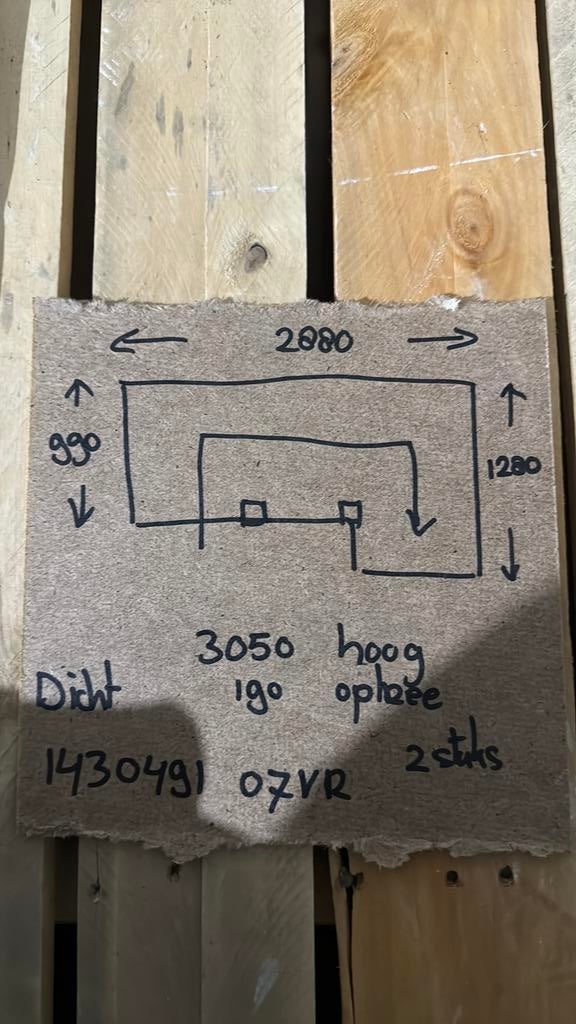 2880
990
1280
3050 hoog
Dicht 190
1430491 07VR 2 stuks